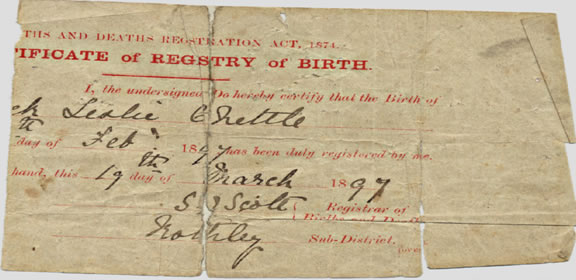 THS AND DEATHS REGSTRATION ACT, 1874.
TIFICATE of REGSTRY of BIRTH.
I, the undersigned Do hereby certify that the Birth of
ck Leslie Chettle
th day of Feb 1897 has been duly registered by me.
hand, this 19th day of March 1897
S J Scott Registrar of
Births and De
Rothley Sub-District.